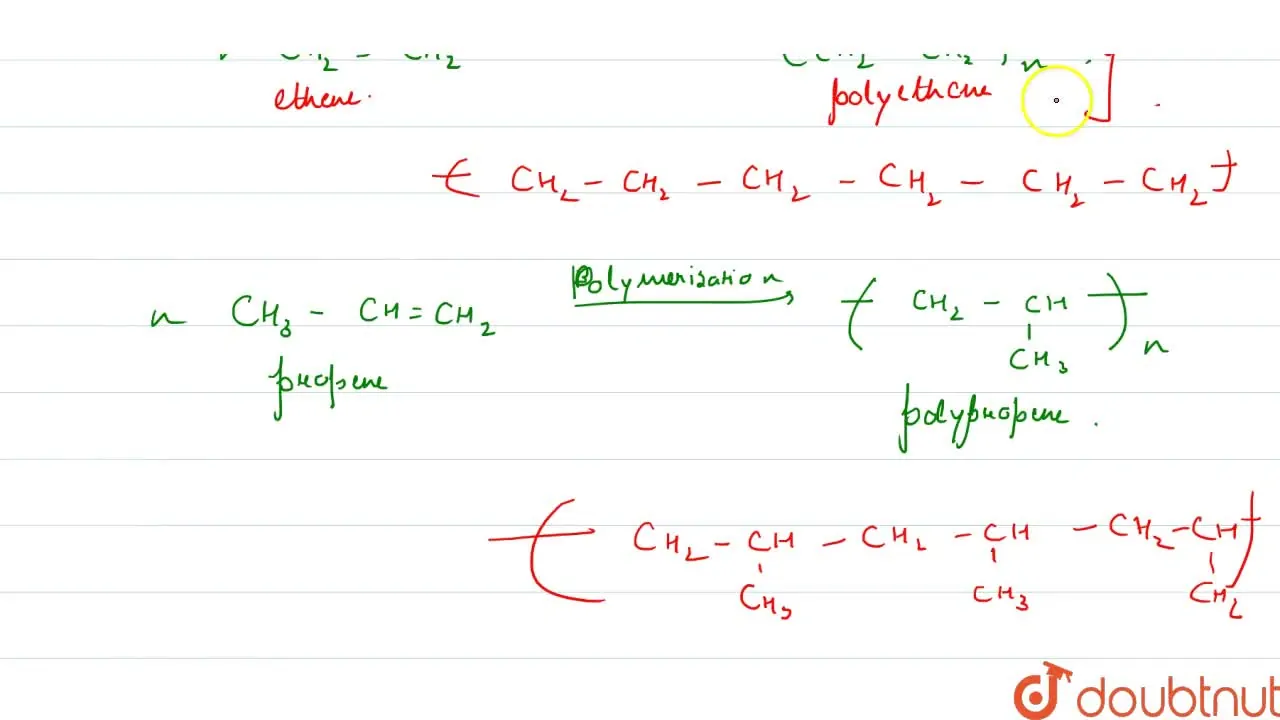 n CH2 = CH2 (CH2 - CH2)n
ethene. polyethane
( CH2 - CH2 - CH2 - CH2 - CH2 - CH2 )
n CH3 - CH = CH2 Polymerization ( CH2 - CH )n
CH3
propene
polypropene.
( CH2 - CH - CH2 - CH - CH2 - CH )
CH3 CH3 CH2
doubtnut